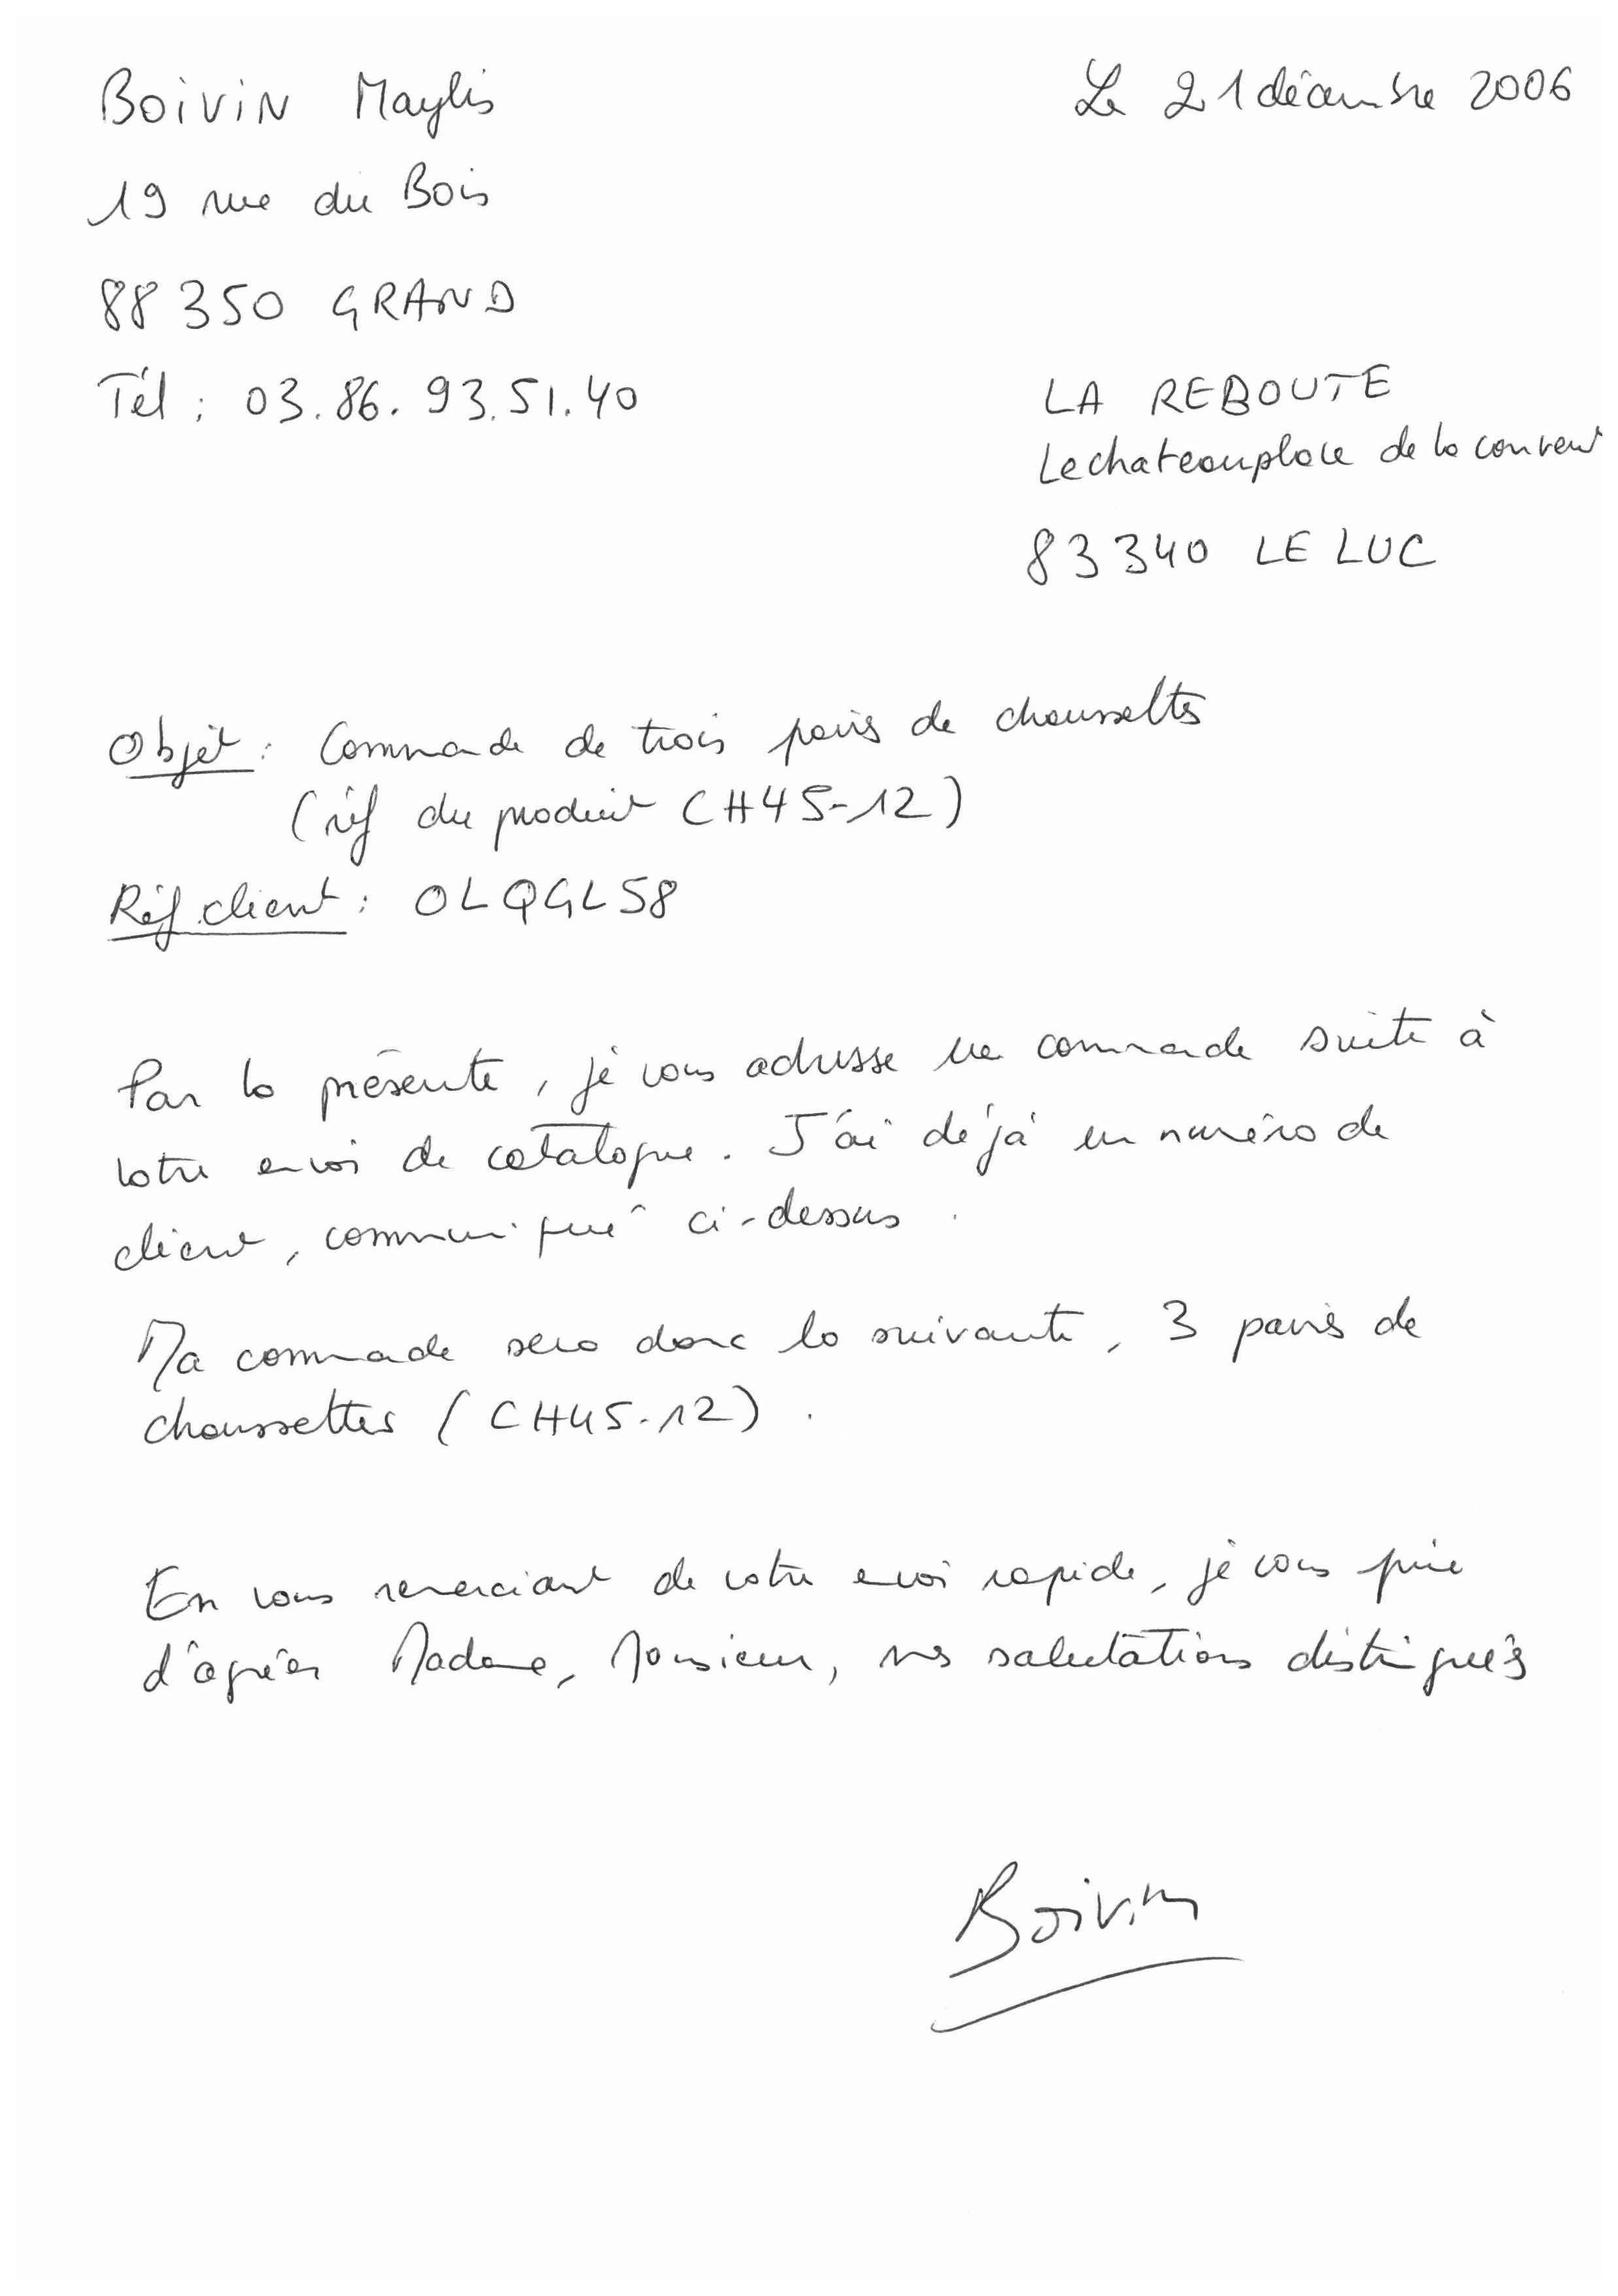 Boivin Maylis
Le 21 décembre 2006
19 rue du Bois
88350 GRAND
Tél : 03.86.93.51.40
LA REBOUTE
Le chateau place de la convent
83340 LE LUC
Objet : Commande de trois paires de chaussettes
(réf du produit CH45-12)
Réf client : OLQGL58
Par la présente, je vous adresse une commande suite à
votre envoi de catalogue. J'ai déjà un numéro de
client, communiqué ci-dessus.
Ma commande sera donc la suivante, 3 paires de
chaussettes (CH45-12).
En vous remerciant de votre envoi rapide, je vous prie
d'agréer Madame, Monsieur, mes salutations distinguées
Boivin